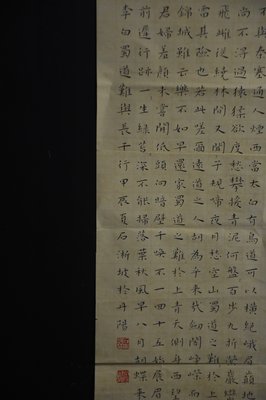 不與秦塞通人煙西當太白有鳥道可以橫絕峨眉巔地
尚不得過猿猱欲度愁攀援青泥何盤百步九折縈巖巒
飛雌從繞林間又聞子規啼夜月愁空山蜀道之難於上
雷其險也若此嗟爾遠道之人胡為乎來哉劍閣崢嶸而
錦城雖云樂不如早還家蜀道之難於上青天側身西望
君婦羞顏未嘗開低頭向暗壁千喚不一回十五始展眉
前遲行跡一生綠苔深不能掃落葉秋風早八月胡蝶來
李白蜀道難與長干行甲辰夏石漸坡於丹陽